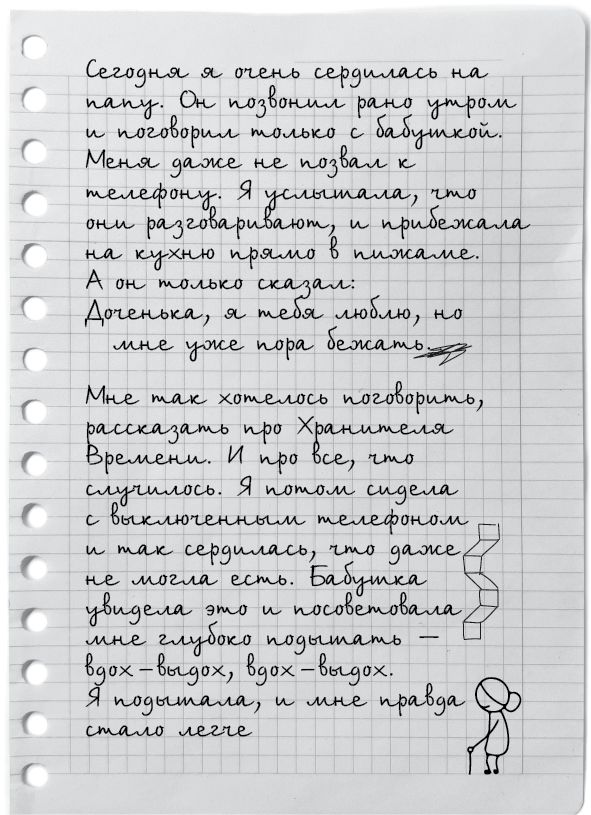 Сегодня я очень сердилась на
папу. Он позвонил рано утром
и поговорил только с бабушкой.
Меня даже не позвал к
телефону. Я услышала, что
они разговаривают, и прибежала
на кухню прямо в пижаме.
А он только сказал:
Доченька, я тебя люблю, но
мне уже пора бежать.
Мне так хотелось поговорить,
рассказать про Хранителя
Времени. И про все, что
случилось. Я потом сидела
с выключенным телефоном
и так сердилась, что даже
не могла есть. Бабушка
увидела это и посоветовала
мне глубоко подышать —
вдох – выдох, вдох – выдох.
Я подышала, и мне правда
стало легче